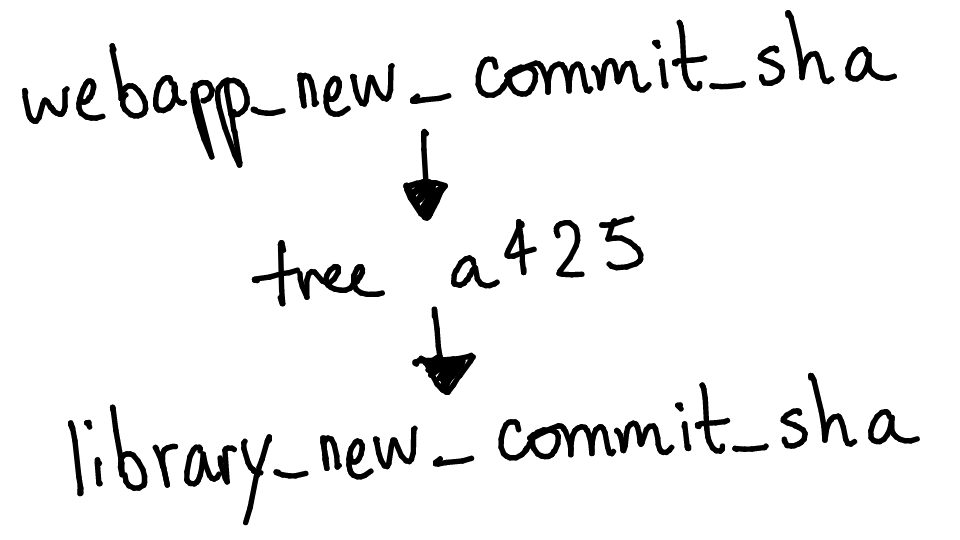 webapp_new_commit_sha
tree a425
library_new_commit_sha